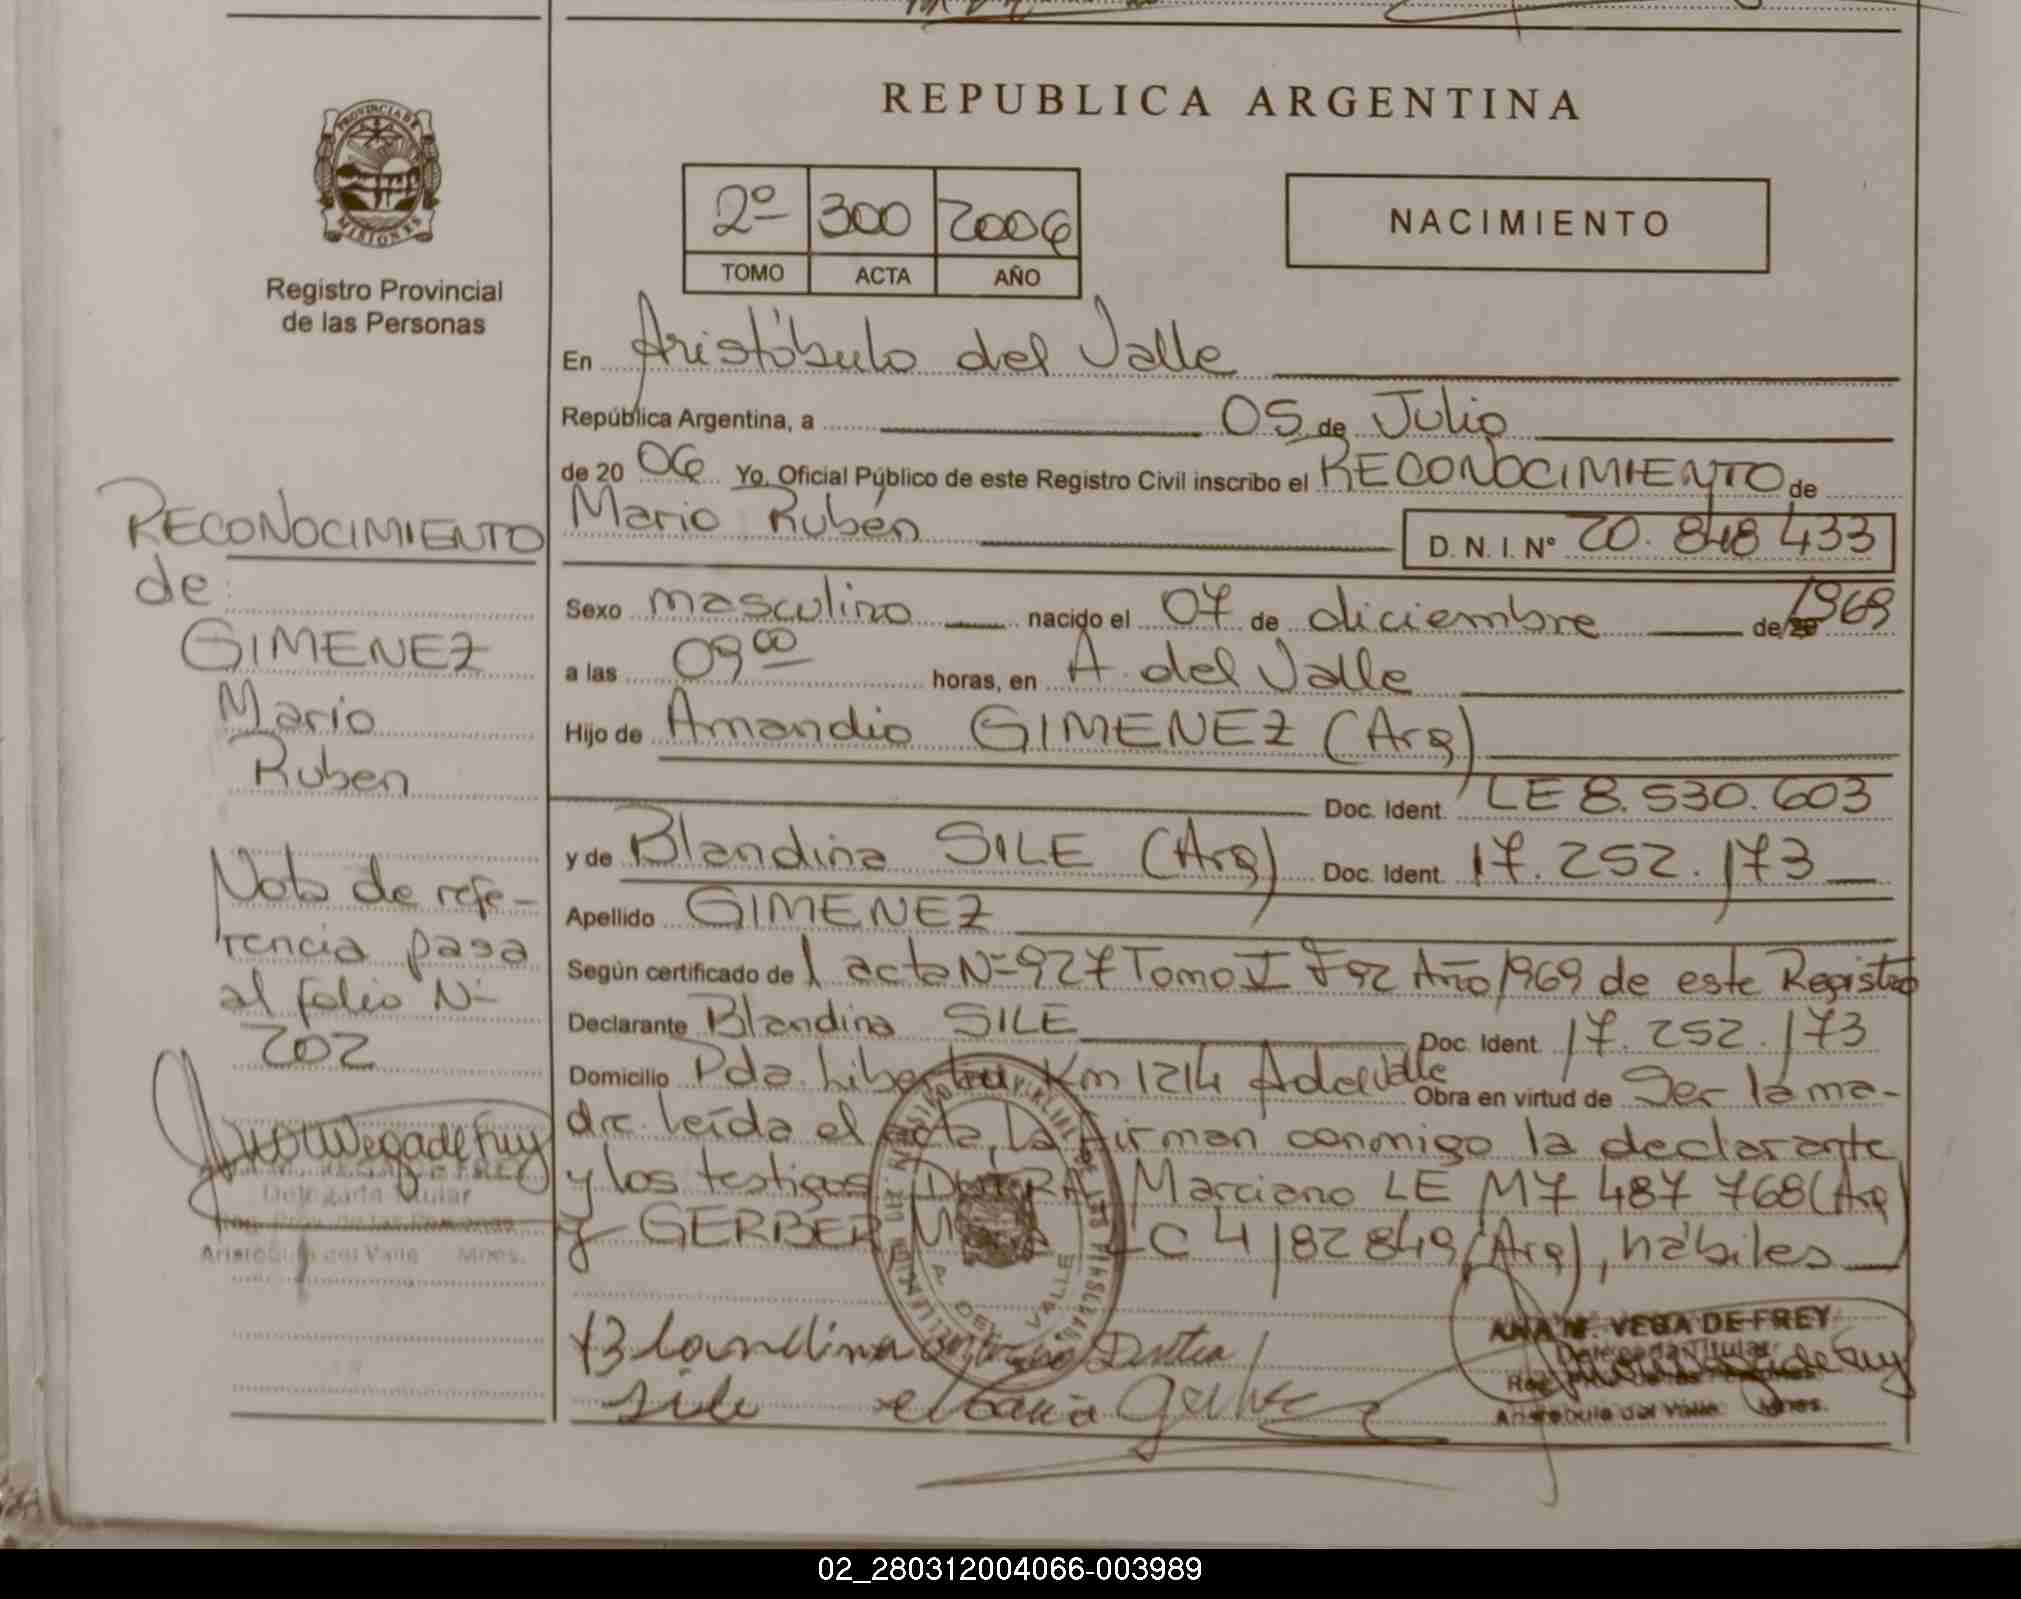 REPUBLICA ARGENTINA
PROVINCIA DE
MISIONES
Registro Provincial
de las Personas
2º 300 2006
TOMO ACTA AÑO
NACIMIENTO
RECONOCIMIENTO
de:
GIMENEZ
Mario
Ruben
Nota de refe-
rencia pasa
al folio Nº
202
Delegada Titular
Aristobulo del Valle Mnes.
En Aristóbulo del Valle
República Argentina, a 05 de Julio
de 20 06 Yo, Oficial Público de este Registro Civil inscribo el RECONOCIMIENTO de
Mario Rubén D. N. I. Nº 20.848 433
Sexo masculino nacido el 07 de diciembre de 1969
a las 09 00 horas, en A. del Valle
Hijo de Amandio GIMENEZ (Arg)
Doc. Ident. LE 8.530.603
y de Blandina SILE (Arg) Doc. Ident. 17.252.173
Apellido GIMENEZ
Según certificado de 1 acta Nº 927 Tomo V F 92 Año 1969 de este Registro
Declarante Blandina SILE Doc. Ident. 17.252.173
Domicilio Pda. Libertad Km 1214 A del Valle Obra en virtud de Ser la ma-
dre. Leída el acta, la firman conmigo la declarante
y los testigos Marciano LE M7 487 768 (Arg)
y GERBER LC 4 182 849 (Arg), hábiles
Blandina
sile
ANA M. VEGA DE FREY
Delegada Titular
Aristobulo del Valle Mnes.
02_280312004066-003989